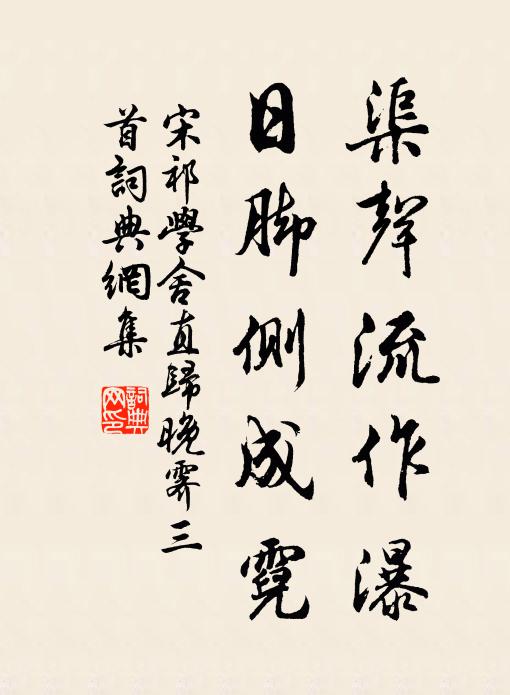 渠聲流作瀑
日脚側成霓
宋祁學舍直歸晚霽三
首詞典網集
詞典
网印